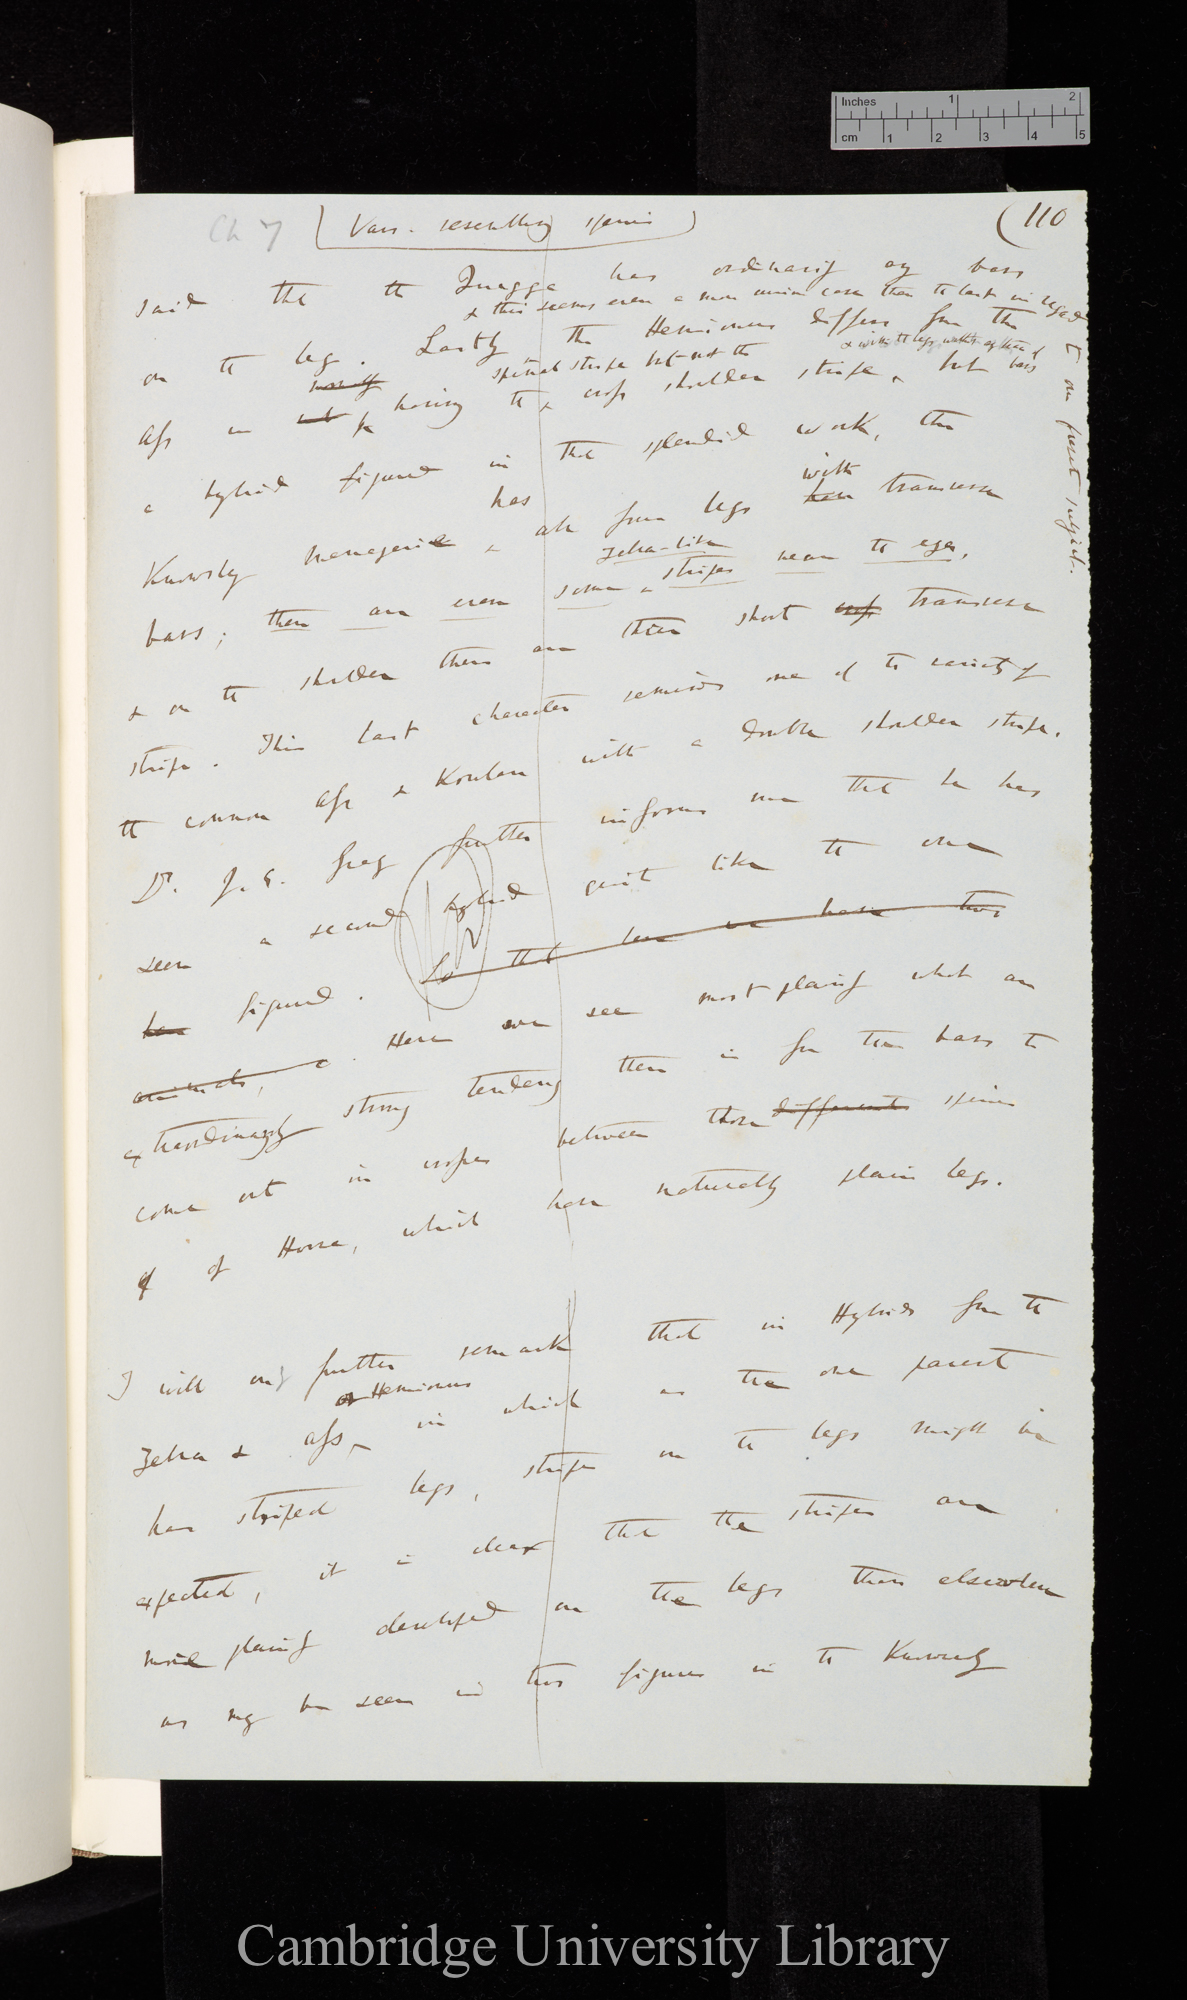 Inches 1 2
cm 1 2 3 4 5
Ch 7 (Vars. resembling species) (110
said that the Quagga has ordinarily any bars
& this seems even a more curious case than the last in regard to our present subject.
on the leg. Lastly the Hemionus differs from the
spinal stripe but not the
Ass in not having the cross shoulder stripe, but
& with the legs without bars
a hybrid figured in that splendid work, the
Knowsley Menagerie has all four legs with transverse
bars; there are even some zebra-like stripes near the eyes,
& on the shoulder there are three short transverse
stripes. This last character reminds one of the variety of
the common Ass & Koulan with a double shoulder stripe.
Dr. J. E. Gray further informs me that he has
seen a second hybrid quite like the one
here figured. So that here we have two
animals, Here we see most plainly what an
extraordinarily strong tendency there is for the bars to
come out in crosses between those different species
of Horse, which have naturally plain legs.
I will only further remark that in Hybrids from the
Zebra & Ass, or Hemionus in which as the one parent
has striped legs, stripes on the legs might be
expected, it is clear that the stripes are
more plainly developed on the legs than elsewhere
as may be seen in two figures in the Knowsley
Cambridge University Library